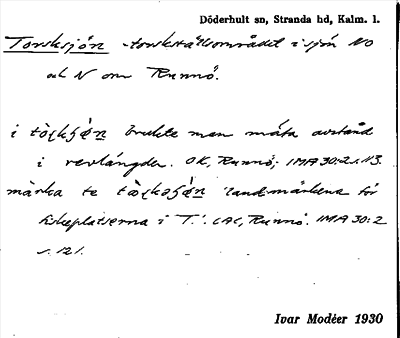 Döderhult sn, Stranda hd, Kalm. l.
Torsksjön - torskställsområdet i sjön NO
och N om Runnö.
i brukte man mäta avstånd
i revlängder. OK, Runnö; IMA 30:2 s. 113.
märka te landmärkena för
fiskeplatserna i T.'. CAC, Runnö. IMA 30:2
s. 121.
Ivar Modéer 1930